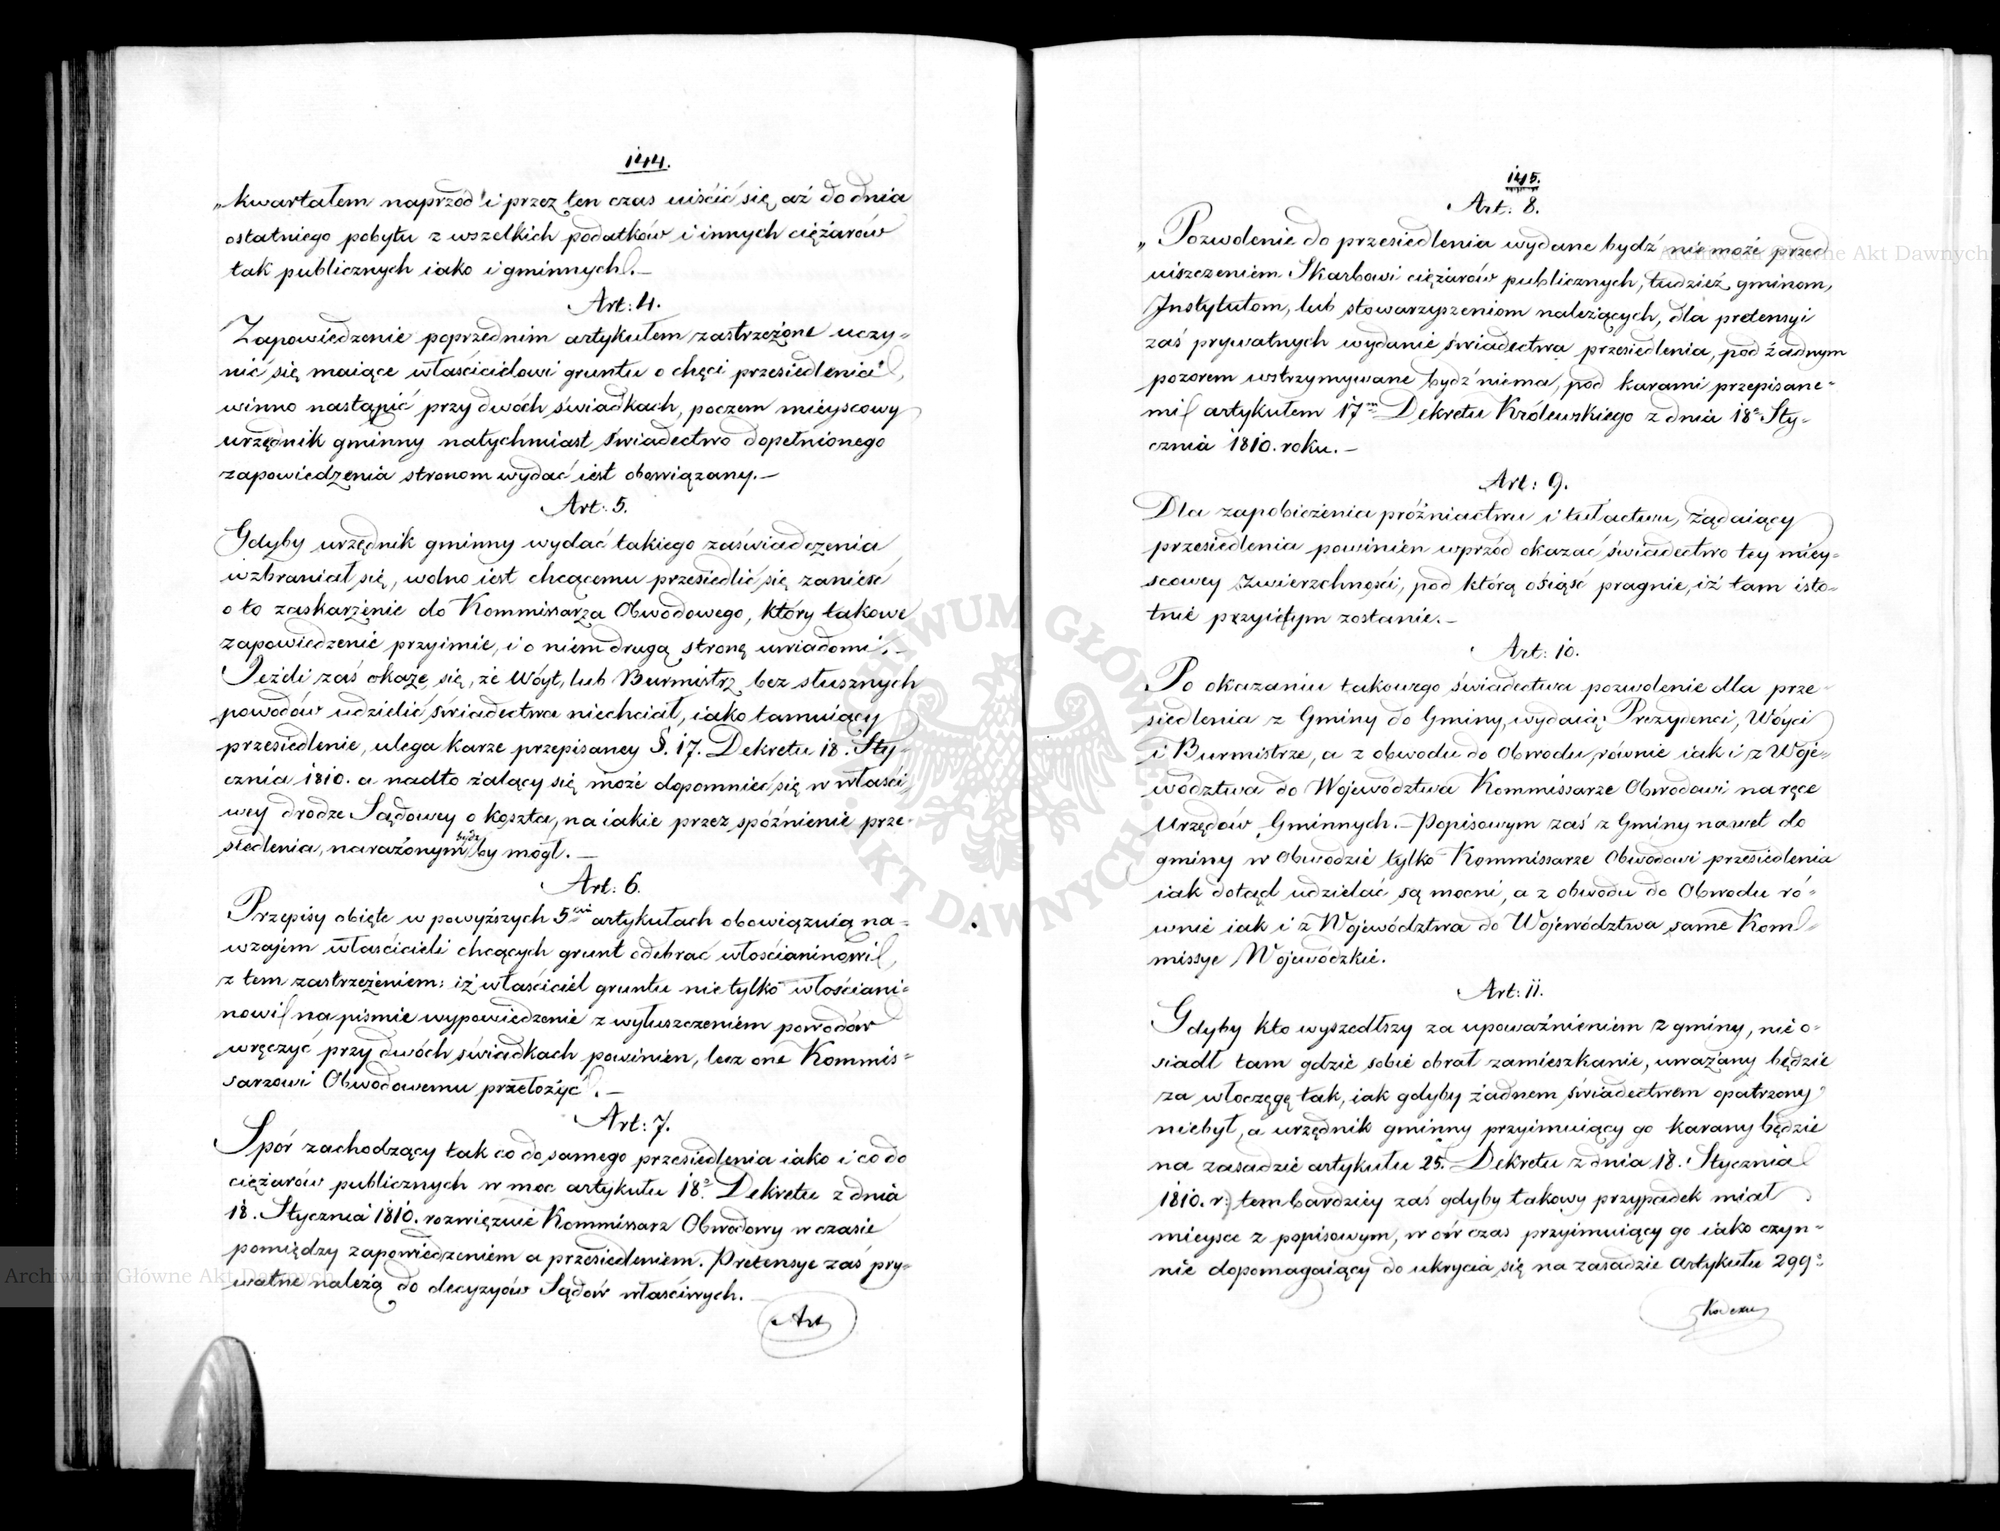 144.
„kwartałem naprzód i przez ten czas uiścić się aż do dnia
ostatniego pobytu z wszelkich podatków i innych ciężarów
tak publicznych iako i gminnych.—
Art: 4.
Zapowiedzenie poprzednim artykułem zastrzeżone uczy-
nić się maiące właścicielowi gruntu o chęci przesiedlenia,
winno nastąpić przy dwóch świadkach, poczem mieyscowy
urzędnik gminny natychmiast świadectwo dopełnionego
zapowiedzenia stronom wydać iest obowiązany.—
Art: 5.
Gdyby urzędnik gminny wydać takiego zaświadczenia
wzbraniał się, wolno iest chcącemu przesiedlić się zanieść
o to zaskarżenie do Kommissarza Obwodowego, który takowe
zapowiedzenie przyimie, i o niem drugą stronę uwiadomi.—
Jeżeli zaś okaże się, że Wóyt, lub Burmistrz bez słusznych
powodów udzielić świadectwa niechciał, iako tamuiący
przesiedlenie, ulega karze przepisaney §. 17. Dekretu 18. Sty-
cznia 1810. a nadto żalący się może dopomnieć się w właści-
wey drodze Sądowey o koszta, na iakie przez spóźnienie prze-
siedlenia, narażonym bydź by mógł.—
Art: 6.
Przepisy obięte w powyższych 5ciu artykułach obowiązuią na-
wzajem właścicieli chcących grunt odebrać włościaninowi,
z tem zastrzeżeniem: iż właściciel gruntu nie tylko włościani-
nowi na piśmie wypowiedzenie z wyłuszczeniem powodów
wręczyć przy dwóch świadkach powinien, lecz one Kommis-
sarzowi Obwodowemu przełożyć.—
Art: 7.
Spór zachodzący tak co do samego przesiedlenia iako i co do
ciężarów publicznych w moc artykułu 18º. Dekretu z dnia
18. Stycznia 1810. rozwięzuie Kommissarz Obwodowy w czasie
pomiędzy zapowiedzeniem a przesiedleniem. Pretensye zaś pry-
watne należą do decyzyów Sądów właściwych.
Art
145.
Art: 8.
„Pozwolenie do przesiedlenia wydane bydź nie może przed
uiszczeniem Skarbowi ciężarów publicznych, tudzież gminom,
Instytutom, lub stowarzyszeniom należących, dla pretensyi
zaś prywatnych wydanie świadectwa przesiedlenia, pod żadnym
pozorem wstrzymywane bydź niema, pod karami przepisane-
mi artykułem 17m Dekretu Królewskiego z dnia 18º Sty-
cznia 1810. roku.—
Art: 9.
Dla zapobieżenia próżniactwu i tułactwu, żądaiący
przesiedlenia powinien wprzód okazać świadectwo tey miey-
scowey Zwierzchności, pod którą osiąść pragnie, iż tam isto-
tnie przyiętym zostanie.—
Art: 10.
Po okazaniu takowego świadectwa pozwolenie dla prze-
siedlenia z Gminy do Gminy, wydaią Prezydenci, Wóyci
i Burmistrze, a z obwodu do Obwodu, równie iak i z Woje-
wództwa do Województwa Kommissarze Obwodowi na ręce
Urzędów Gminnych.— Popisowym zaś z Gminy nawet do
gminy w Obwodzie tylko Kommissarze Obwodowi przesiedlenia
iak dotąd udzielać są mocni, a z obwodu do Obwodu ró-
wnie iak i z Województwa do Województwa same Kom-
missye Wojewódzkie.
Art: 11.
Gdyby kto wyszedłszy za upoważnieniem z gminy, nie o-
siadł tam gdzie sobie obrał zamieszkanie, uważany będzie
za włóczęgę tak, iak gdyby żadnem świadectwem opatrzony
niebył, a urzędnik gminny przyimuiący go karany będzie
na zasadzie artykułu 25. Dekretu z dnia 18. Stycznia
1810. r: tembardziey zaś gdyby takowy przypadek miał
mieysce z popisowym, w ów czas przyimuiący go iako czyn-
nie dopomagaiący do ukrycia się na zasadzie Artykułu 299º
Kodexu
Archiwum Główne Akt Dawnych
Archiwum Główne Akt Dawnych
ARCHIWUM GŁÓWNE AKT DAWNYCH